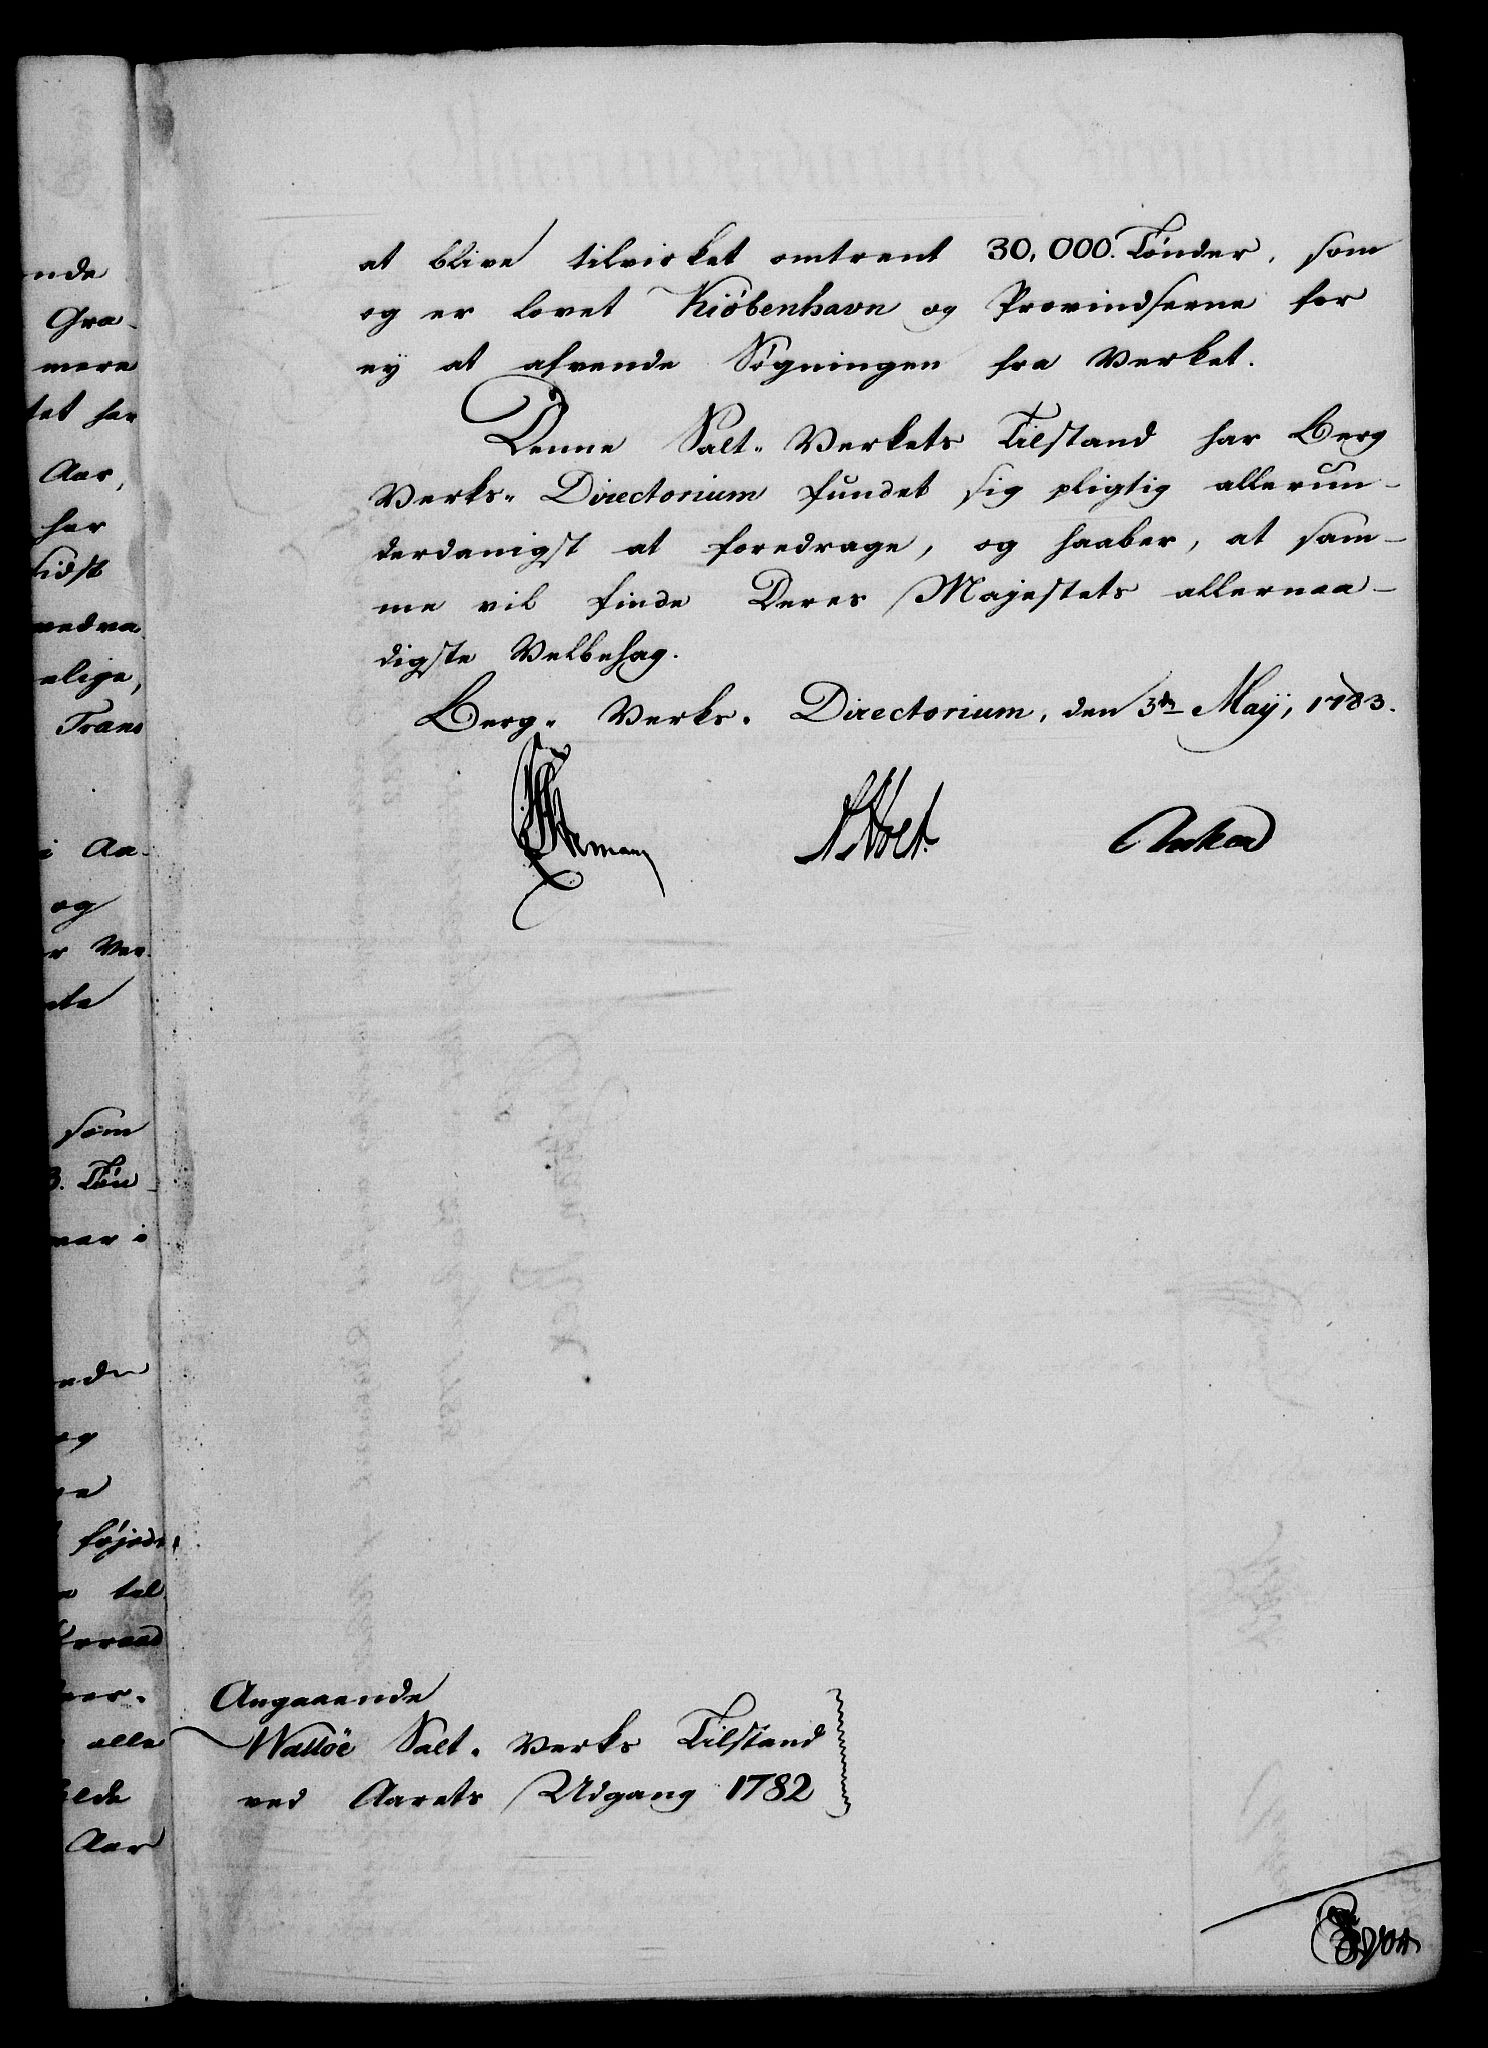 at blive tilvirket omtrent 30,000. Tönder, som
og er lovet Kiöbenhavn og Provindserne for
ey at afvende Sögningen fra Verket.
Denne Salt-Verkets Tilstand har Berg
Verks-Directorium fundet sig pligtig allerun-
derdanigst at foredrage, og haaber, at sam-
me vil finde Deres Majestets allernaa-
digste Velbehag.
Berg-Verks-Directorium, den 3die Maÿ, 1783.
Holt. Anker
Angaaende
Walløe Salt-Verks Tilstand
ved Aarets Udgang 1782
nde
Gra-
mere
tet har
Aar,
har
sidst
elige,
Trans
i Aa-
og
som
3. Tön-
var i
og
föjede
til
alle
Aar